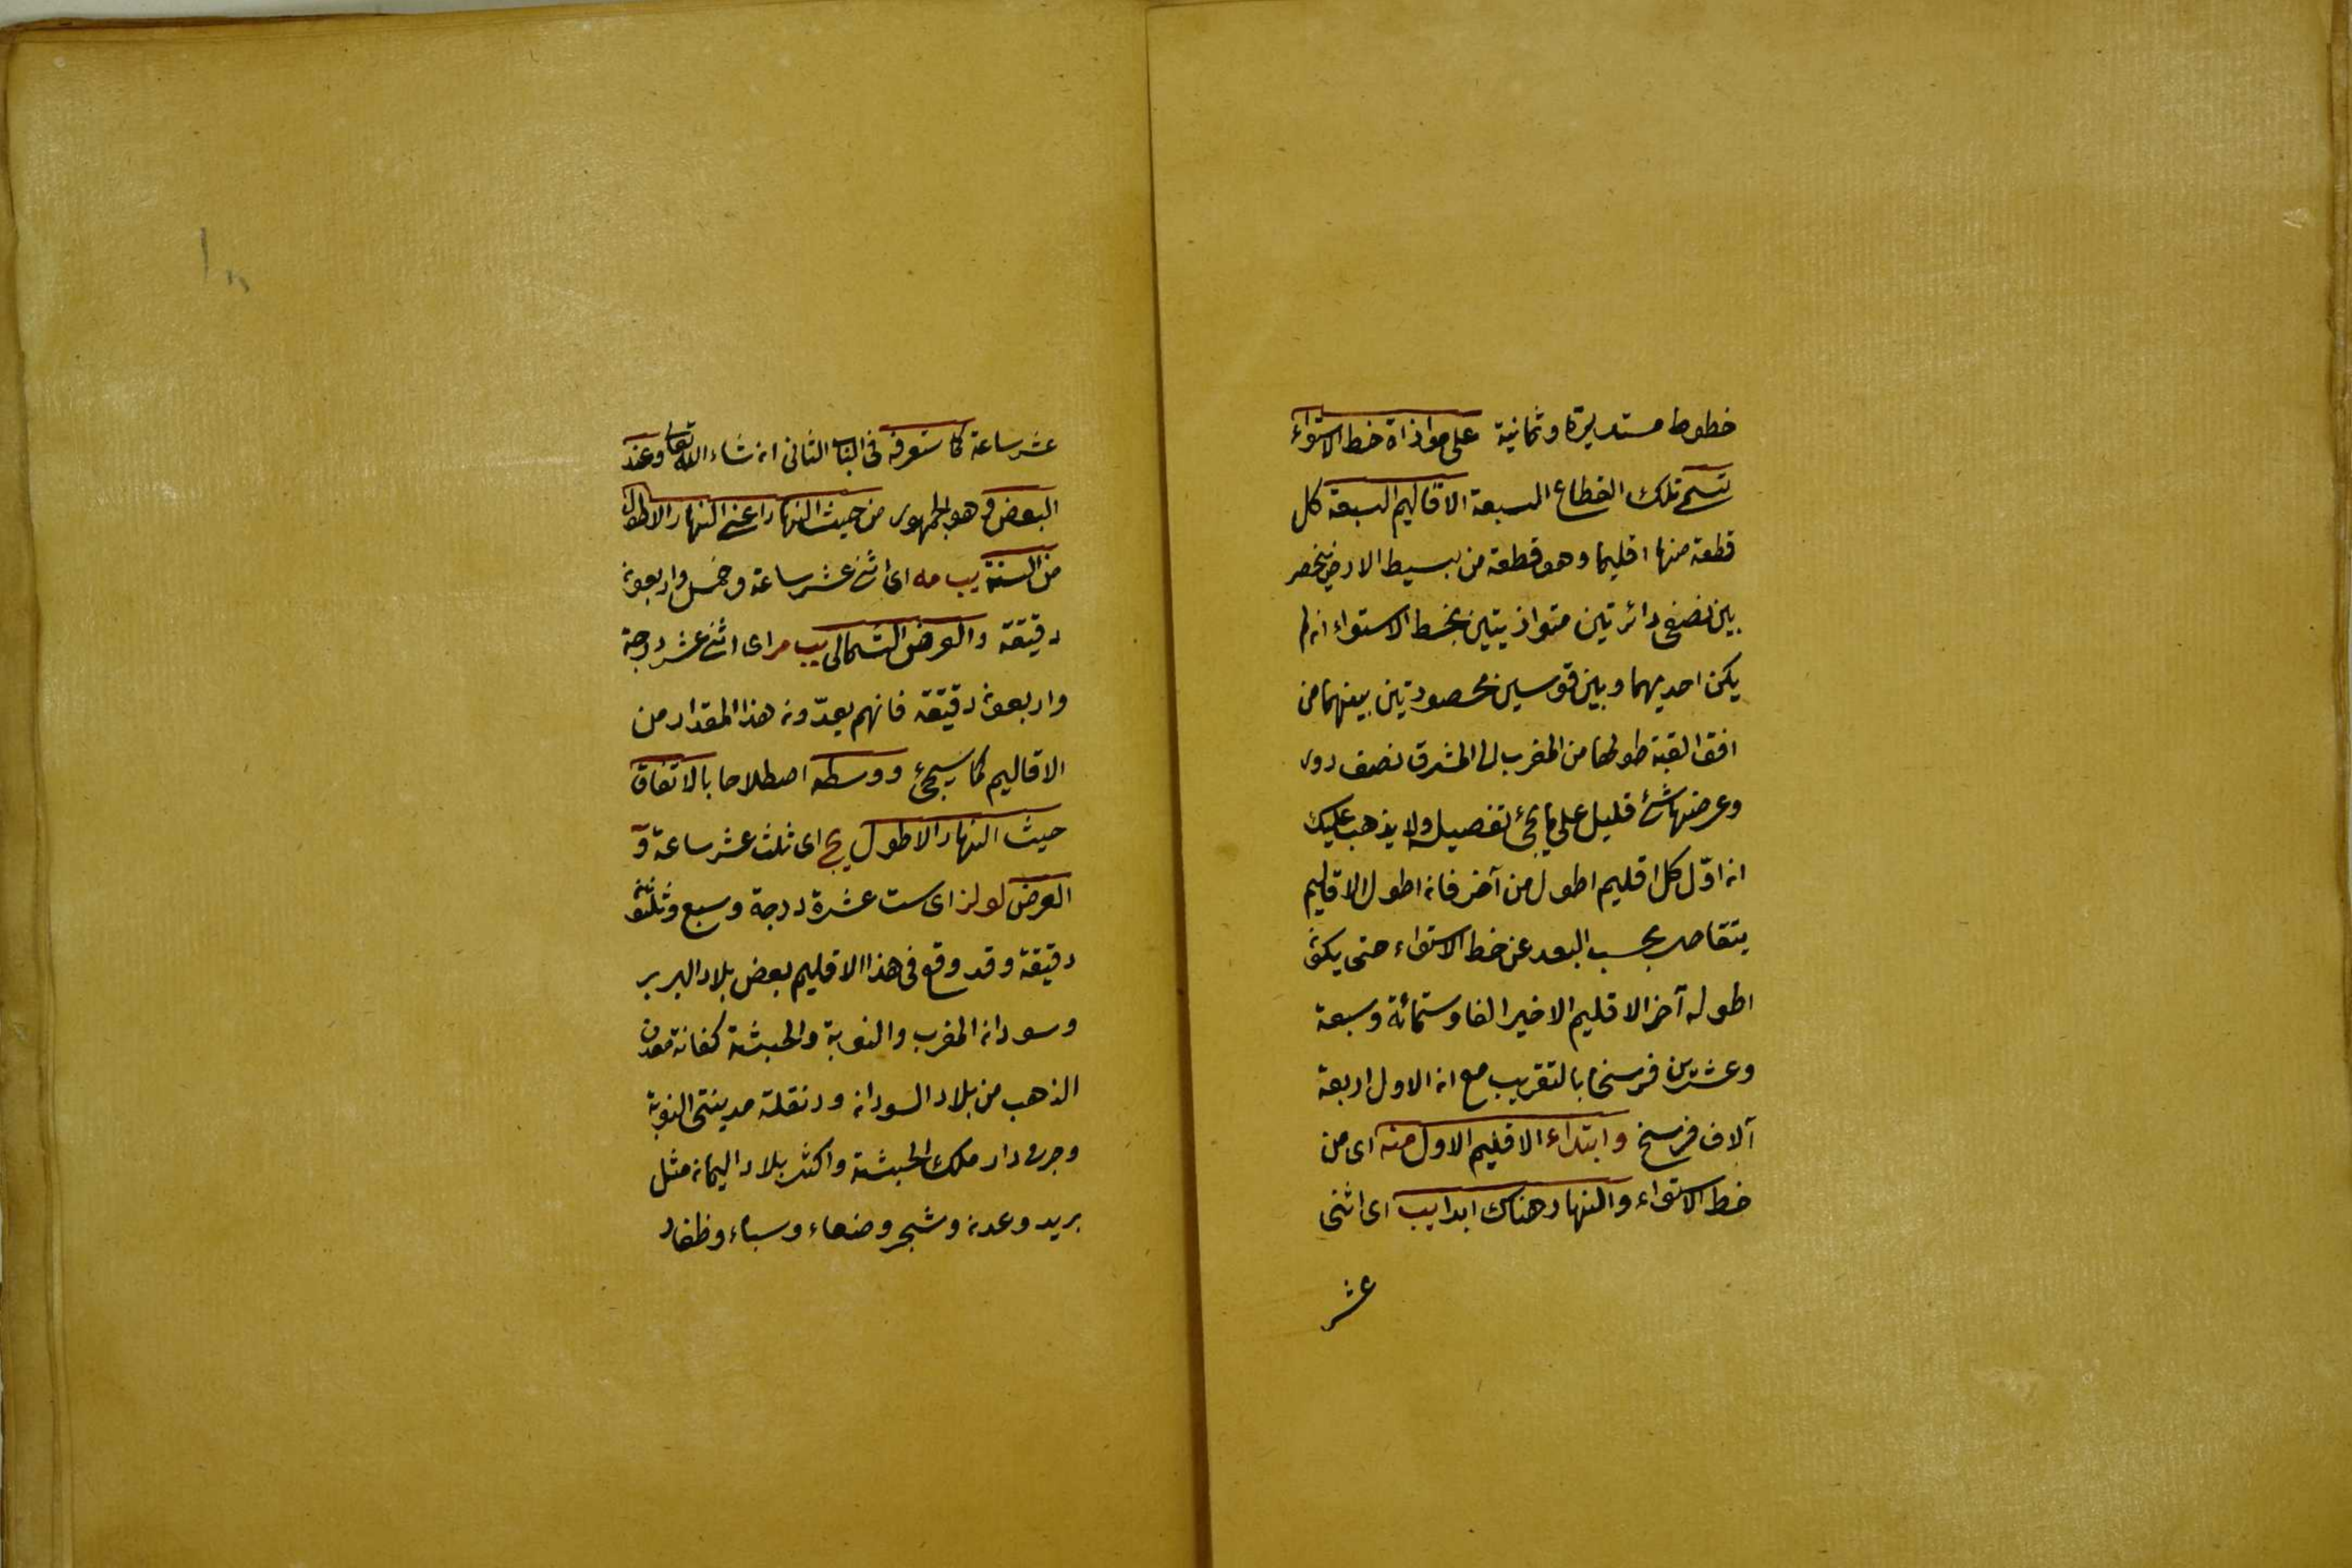 خطوط مستديرة وثمانية على موازاة خط الاستواء
تسمى تلك القطاع السبعة الاقاليم السبعة كل
قطعة منها اقليما وهو قطعة من بسيط الارض ينحصر
بين نصفى دائرتين متوازيتين بخط الاستواء ان لم
يكن احديهما وبين قوسين محصورتين بينهما من
افق القبة طولها من المغرب الى المشرق نصف دور
وعرضها شئ قليل على ما يجئ تفصيله ولا يذهب عليك
ان اوّل كل اقليم اطول من آخر فان اطول الاقليم
يتقاصر بحسب البعد عن خط الاستواء حتى يكون
اطوله آخر الاقليم الاخير الفا وستمائة وسبعة
وعشرين فرسخا بالتقريب مع ان الاول اربعة
آلاف فرسخ وابتداء الاقليم الاول منه اى من
خط الاستواء والنهار هناك ابدا يب اى اثنى
عشر
عشر ساعة كما ستعرفه فى الباب الثانى ان شاء الله تعالى وعند
البعض وهو الجمهور من حيث النهار اعنى النهار الاطول
من السنة يب مه اى اثنى عشر ساعة وخمس واربعون
دقيقة والعرض الشمالى يب م اى اثنى عشر درجة
واربعون دقيقة فانهم يعدّون هذا المقدار من
الاقاليم كما سيجئ ووسطه اصطلاحا بالاتفاق
حيث النهار الاطول يج اى ثلث عشر ساعة و
العرض يو لز اى ست عشرة درجة وسبع وثلثون
دقيقة وقد وقع فى هذا الاقليم بعض بلاد البربر
وسودان المغرب والنوبة والحبشة كغانة معدن
الذهب من بلاد السودان ودنقلة مدينتى النوبة
وجرمى دار ملك الحبشة واكثر بلاد اليمان مثل
بريد وعدن وشحر وصنعاء وسباء وظفار